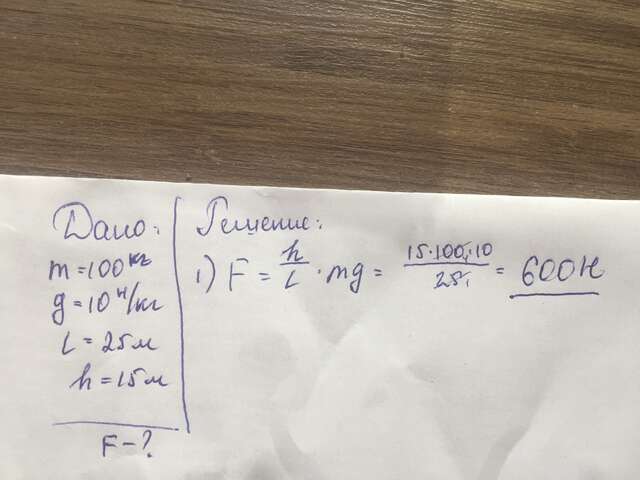 Дано:
m = 100 кг
g = 10 н/кг
L = 25 м
h = 15 м
F - ?
Решение:
1) F = h/L · mg = 15·100·10/25 = 600 Н